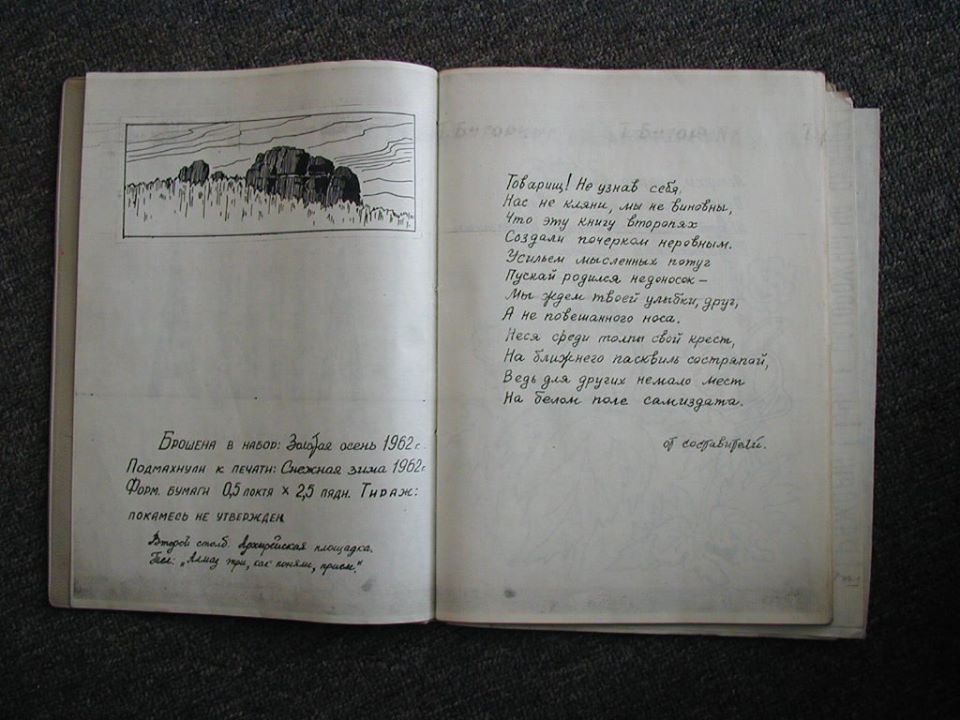 Брошена в набор: Золотая осень 1962 г.
Подмахнули к печати: Снежная зима 1962 г
Форм. бумаги 0,5 локтя × 2,5 пядн. Тираж:
покамесь не утвержден
Второй столб. Архирейская площадка.
Тел: „Алмаз три, как поняли, прием."
Товарищ! Не узнав себя,
Нас не кляни, мы не виновны,
Что эту книгу второпях
Создали почерком неровным.
Усильем мысленных потуг
Пускай родился недоносок –
Мы ждем твоей улыбки, друг,
А не повешанного носа.
Неся среди толпы свой крест,
На ближнего пасквиль состряпай,
Ведь для других немало мест
На белом поле самиздата.
от составителей.